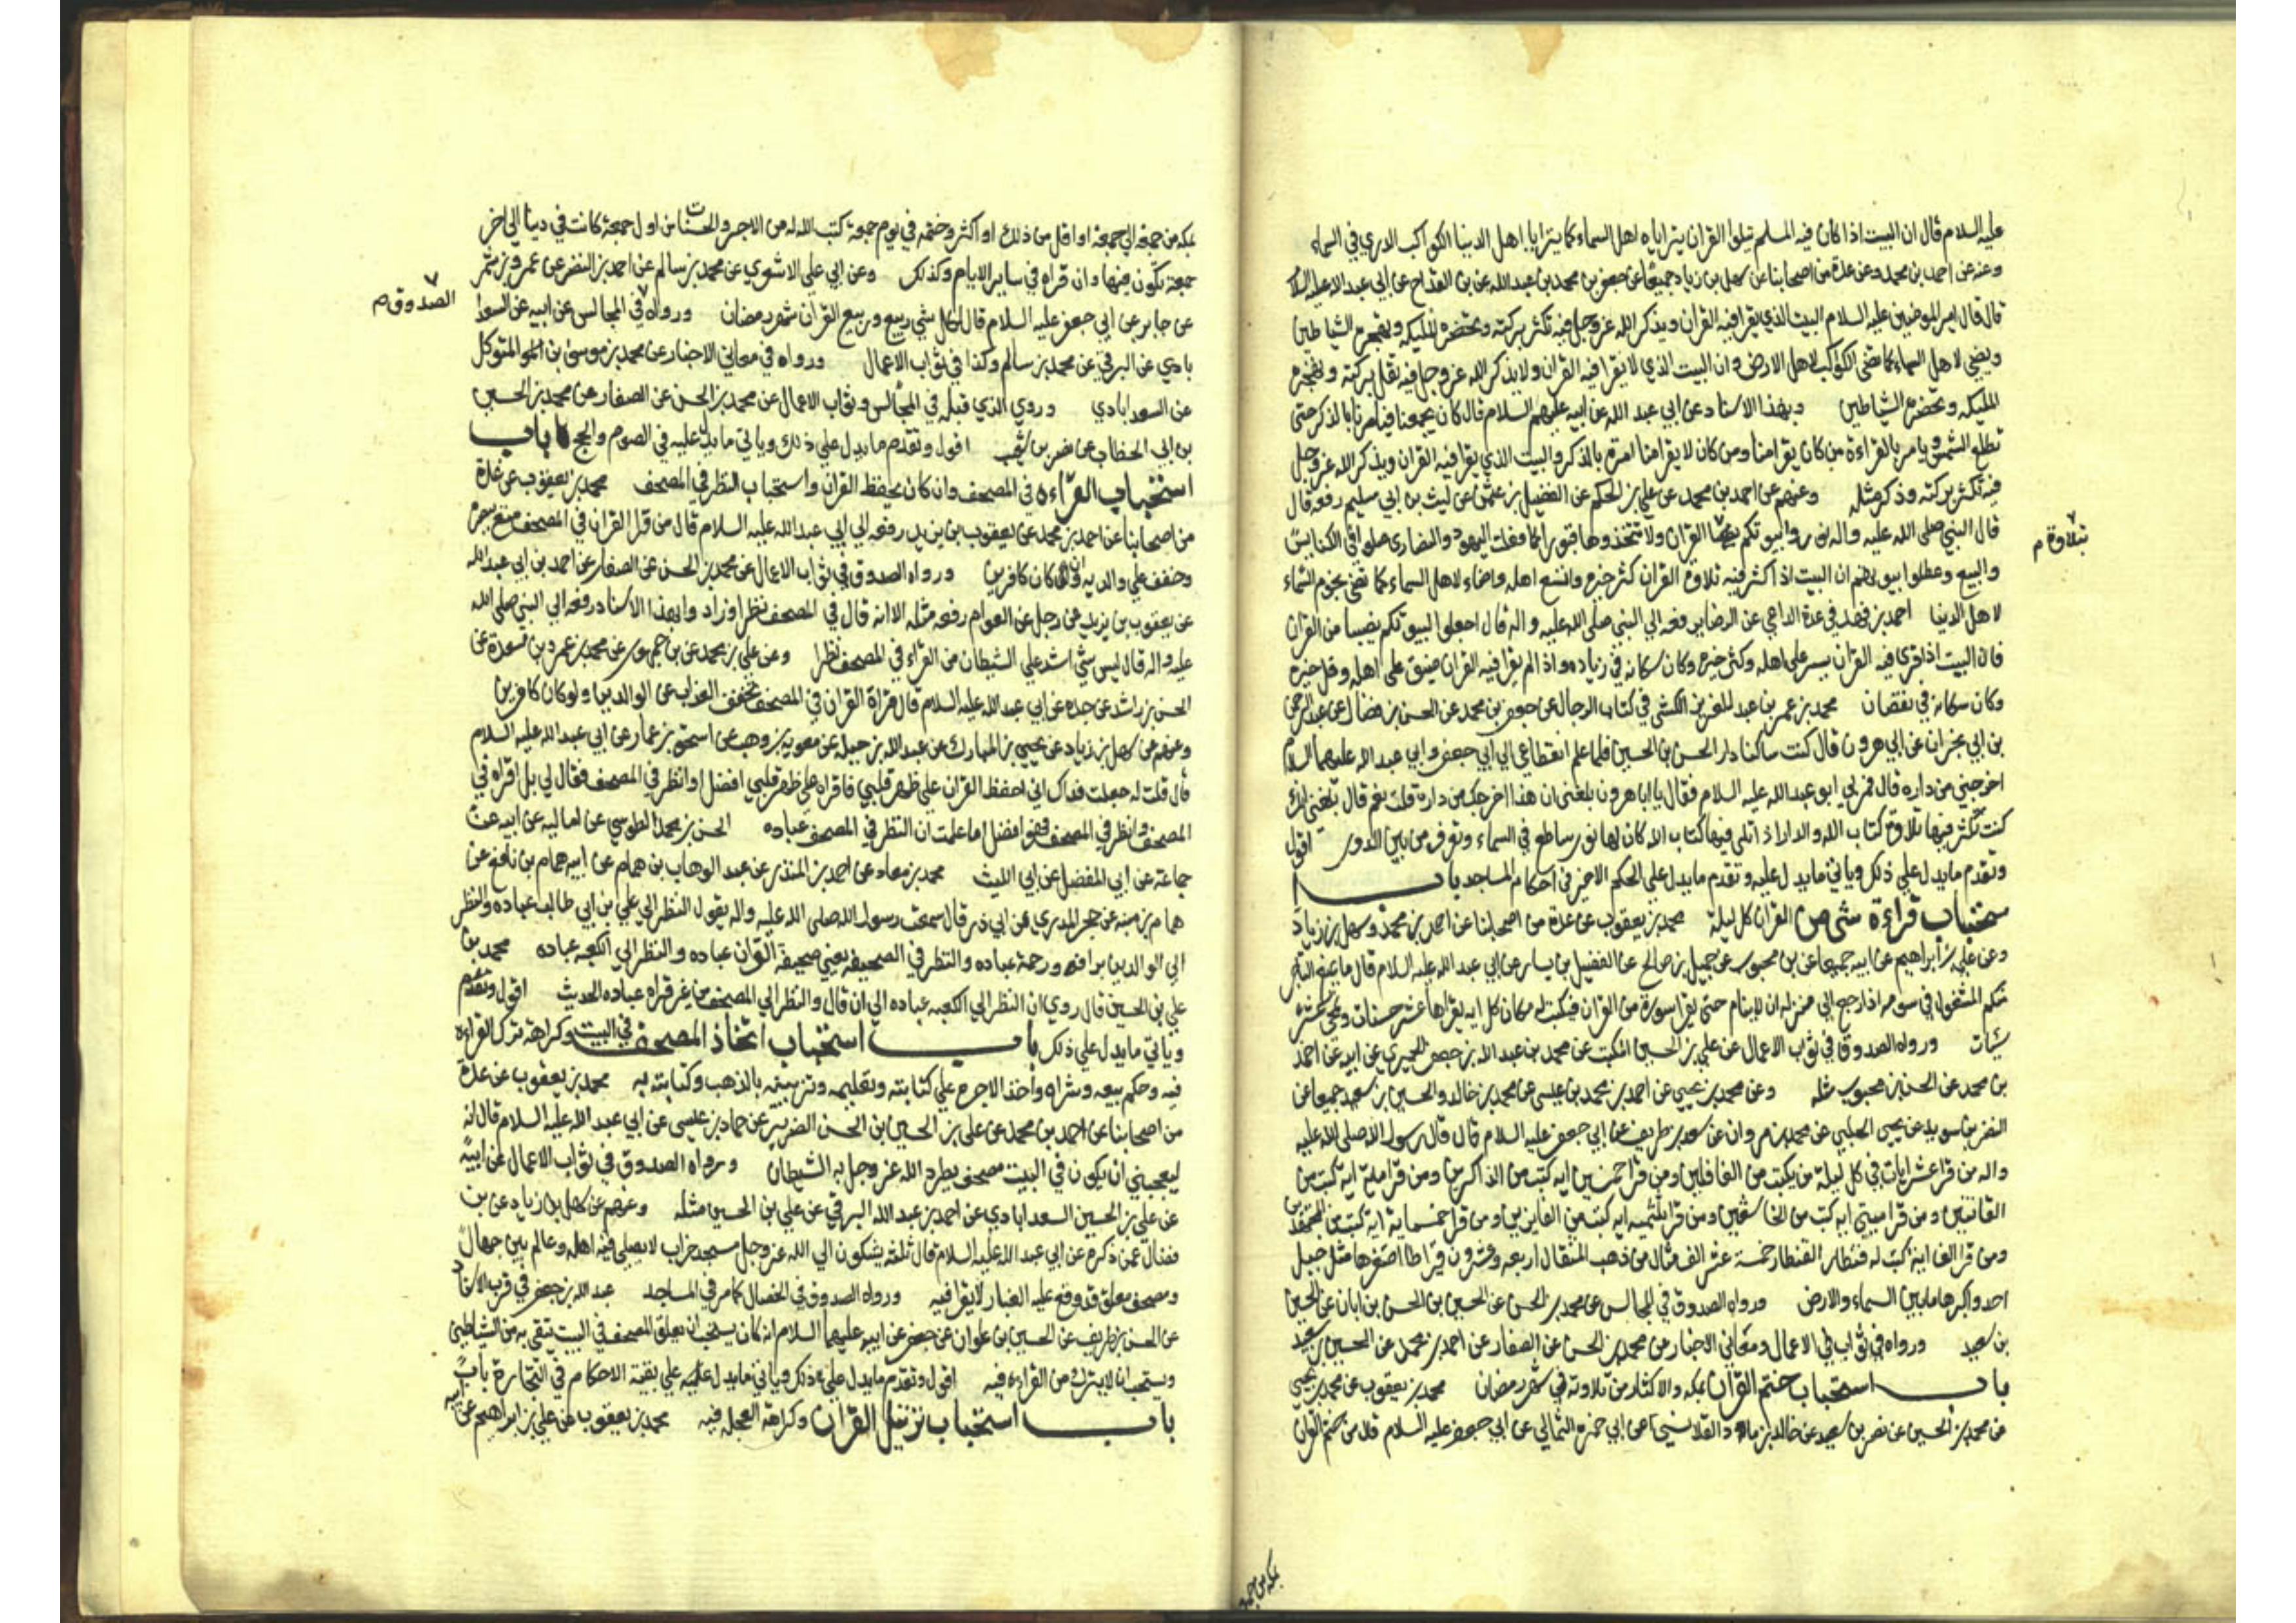 عليه السلام قال ان البيت اذا كان فيه المسلم يتلو القران يتراياه اهل السماء كما يترايا اهل الدينا الكواكب الدري في السماء
وعنه عن احمد بن محمد وعن عدة من اصحابنا عن سهل بن زياد جميعا عن جعفر بن محمد بن عبد الله عن بن القداح عن ابي عبد الله عليه السلام
قال قال امير المومنين عليه السلام البيت الذي يقرا فيه القران ويذكر الله عز وجل فيه تكثر بركته وتحضره المليكه وتهجره الشياطين
ويضي لاهل السماء كما تضي الكواكب لاهل الارض وان البيت الذي لا يقرا فيه القران ولا يذكر الله عز وجل فيه تقل بركته وتهجره
المليكه وتحضره الشياطين وبهذا الاسناد عن ابي عبد الله عن ابيه عليهم السلام قال كان يجمعنا فيامرنا بالذكر حتى
تطلع الشمس ويامر بالقراءة من كان يقرا منا ومن كان لا يقرا منا امره بالذكر والبيت الذي يقرا فيه القران ويذكر الله عز وجل
فيه تكثر بركته وذكر مثله وعنهم عن احمد بن محمد عن علي بن الحكم عن الفضيل بن عثمن عن ليث بن ابي سليم رفعه قال
قال النبي صلى الله عليه واله نوروا بيوتكم القران ولا تتخذوها قبورا كما فعلت اليهود والنصارى صلوا في الكنايس
تلاوة م
والبيع وعطلوا بيوتهم ان البيت اذا كثر فيه تلاوة القران كثر خيره واتسع اهله واضاء لاهل السماء كما تضي نجوم السماء
لاهل الدينا احمد بن فهد في عدة الداعي عن الرضا يرفعه الي النبي صلى الله عليه واله قال اجعلوا لبيوتكم نصيبا من القران
فان البيت اذا قرى فيه القران يسر على اهله وكثر خيره وكان سكانه في زياده واذا لم يقرا فيه القران ضيق على اهله وقل خيره
وكان سكانه في نقصان محمد بن عمر بن عبد العزيز الكشي في كتاب الرجال عن جعفر بن محمد عن الحسن بن فضال عن عبد الرحمن
بن ابي نجران عن ابي هرون قال كنت ساكنا دار الحسن بن الحسين فلما علم انقطاعي الي ابي جعفر وابي عبد الله عليهما السلام
اخرجني من داره قال فمر بي ابو عبد الله عليه السلام فقال يا ابا هرون بلغني ان هذا اخرجك من داره قلت نعم قال بلغني انك
كنت تكثر فيها تلاوة كتاب الله والدار اذا تلي فيها كتاب الله كان لها نور ساطع في السماء وتعرف من بين الدور اقول
وتقدم ما يدل علي ذلك وياتي ما يدل عليه وتقدم ما يدل علي الحكم الاخير في احكام المساجد باب ا
ستحباب قراءة شي من القران كل ليلة محمد بن يعقوب عن عدة من اصحابنا عن احمد بن محمد وسهل بن زياد
وعن علي بن ابراهيم عن ابيه جميعا عن بن محبوب عن جميل بن صالح عن الفضيل بن يسار عن ابي عبد الله عليه السلام قال ما يمنع التاجر
منكم المشغول في سوقه اذا رجع الي منزله ان لا ينام حتى يقرا سورة من القران فيكتب له مكان كل ايه يقراها عشر حسنات وتمحى عشر
سيئات ورواه الصدوق في ثواب الاعمال عن علي بن الحسين المكتب عن محمد بن عبد الله بن جعفر الحميري عن ابيه عن احمد
بن محمد عن الحسن بن محبوب مثله وعن محمد بن يحيى عن احمد بن محمد بن عيسى عن محمد بن خالد والحسين بن سعيد جميعا عن
النضر بن سويد عن يحيى الحلبي عن محمد بن مروان عن سعد بن طريف عن ابي جعفر عليه السلام قال قال رسول الله صلى الله عليه
واله من قرا عشر ايات في كل ليلة من يكتب من الغافلين ومن قرا خمسين ايه كتب من الذاكرين ومن قرا ماية ايه كتب من
القانتين ومن قرا ميتي ايه كتب من الخاشعين ومن قرا ثلثميه ايه كتب من الفايزين ومن قرا خمسماية ايه كتب من المجتهدين
ومن قرا الف اية كتب له قنطار القنطار خمسة عشر الف مثقال من ذهب المثقال اربعه وعشرون قيراطا اصغرها مثل جبل
احد واكبرها ما بين السماء والارض ورواه الصدوق في المجالس عن محمد بن الحسن عن الحسين بن الحسن بن ابان عن الحسين
بن سعيد ورواه في ثواب الاعمال ومعاني الاخبار عن محمد بن الحسن عن الصفار عن احمد بن محمد عن الحسين بن سعيد
باب استحباب ختم القران بمكه والاكثار من تلاوته في شهر رمضان محمد بن يعقوب عن محمد بن يحيى
عن محمد بن الحسين عن نضر بن سعيد عن خالد بن ماد القلانسي عن ابي حمزه الثمالي عن ابي جعفر عليه السلام قال من ختم القران
بمكه من جمعة
بمكه من جمعة الي جمعة او اقل من ذلك او اكثر وختمه في يوم جمعة كتب الله له من الاجر والحسنات من اول جمعة كانت في دينا الي اخر
جمعة تكون فيها وان قراه في ساير الايام وكذلك وعن ابي علي الاشعري عن محمد بن سالم عن احمد بن النضر عن عمرو بن شمر
عن جابر عن ابي جعفر عليه السلام قال لكل شي ربيع وربيع القران شهر رمضان ورواه في المجالس عن ابيه عن السعدا
الصدوق م
بادي عن البرقي عن محمد بن سالم وكذا في ثواب الاعمال ورواه في معاني الاخبار عن محمد بن موسى بن المتوكل
عن السعدابادي وروى الذي قبله في المجالس وثواب الاعمال عن محمد بن الحسن عن الصفار عن محمد بن الحسين
بن ابي الخطاب عن نضر بن شعيب اقول وتقدم ما يدل علي ذلك وياتي ما يدل عليه في الصوم والحج باب
استحباب القراءه في المصحف وان كان يحفظ القران واستحباب النظر في المصحف محمد بن يعقوب عن عدة
من اصحابنا عن احمد بن محمد عن يعقوب بن يزيد رفعه الي ابي عبد الله عليه السلام قال من قرا القران في المصحف متع ببصره
وخفف علي والديه وان كان كافرين ورواه الصدوق في ثواب الاعمال عن محمد بن الحسن عن الصفار عن احمد بن ابي عبد الله
عن يعقوب بن يزيد عن رجل عن العوام رفعه مثله الا انه قال في المصحف نظرا وزاد وابهذا الاسناد رفعه الي النبي صلى الله
عليه واله قال ليس شي اشد علي الشيطان من القراء في المصحف نظرا وعن علي بن محمد عن بن جمهور عن محمد بن عمر بن مسعدة عن
الحسن بن راشد عن جده عن ابي عبد الله عليه السلام قال قراة القران في المصحف تخفف العذاب عن الوالدين ولو كان كافرين
وعنهم عن سهل بن زياد عن يحيى بن المبارك عن عبد الله بن جبله عن معويه بن وهب عن اسحق بن عمار عن ابي عبد الله عليه السلام
قال قلت له جعلت فداك اني احفظ القران علي ظهر قلبي فاقراه علي ظهر قلبي افضل او انظر في المصحف فقال لي بل اقراه في
المصحف وانظر في المصحف فهو افضل اما علمت ان النظر في المصحف عباده الحسن بن محمد الطوسي عن اماليه عن ابيه عن
جماعة عن ابي المفضل عن ابي الليث محمد بن معاد عن احمد بن المنذر عن عبد الوهاب بن همام عن ابيه همام بن نافع عن
همام بن منبه عن حجر المدري عن ابي ذر قال سمعت رسول الله صلى الله عليه واله يقول النظر الي علي بن ابي طالب عباده والنظر
الي الوالدين برافه ورحمة عباده والنظر في الصحيفه يعني صحيفة القران عباده والنظر الي الكعبه عباده محمد بن
علي بن الحسين قال روي ان النظر الي الكعبه عباده الي ان قال والنظر الي المصحف من غير قراه عباده الحديث اقول وتقدم
وياتي ما يدل علي ذلك باب استحباب اتخاذ المصحف في البيت وكراهة ترك القراءه
فيه وحكم بيعه وشراه واخذ الاجره علي كتابته وتعليمه وتزيينه بالذهب وكتابته به محمد بن يعقوب عن عدة
من اصحابنا عن احمد بن محمد عن علي بن الحسين بن الحسن الضرير عن حماد بن عيسى عن ابي عبد الله عليه السلام قال انه
ليعجبني ان يكون في البيت مصحف يطرد الله عز وجل به الشيطان ورواه الصدوق في ثواب الاعمال عن ابيه
عن علي بن الحسين السعدابادي عن احمد بن عبد الله البرقي عن علي بن الحسين مثله وعنهم عن سهل بن زياد عن بن
فضال عمن ذكره عن ابي عبد الله عليه السلام قال ثلثه يشكون الي الله عز وجل مسجد خراب لا يصلي فيه اهله وعالم بين جهال
ومصحف معلق قد وقع عليه الغبار لا يقرا فيه ورواه الصدوق في الخصال كما مر في المساجد عبد الله بن جعفر في قرب الاسناد
عن الحسن بن ظريف عن الحسين بن علوان عن جعفر عن ابيه عليهما السلام انه كان يستحب ان يعلق المصحف في البيت يتقى به من الشياطين
ويستحب ان لا يترك من القراءه فيه اقول وتقدم ما يدل على ذلك وياتي ما يدل عليه علي بقية الاحكام في التجارة باب
باب استحباب ترتيل القران وكراهة العجله فيه محمد بن يعقوب عن علي بن ابراهيم عن ابيه